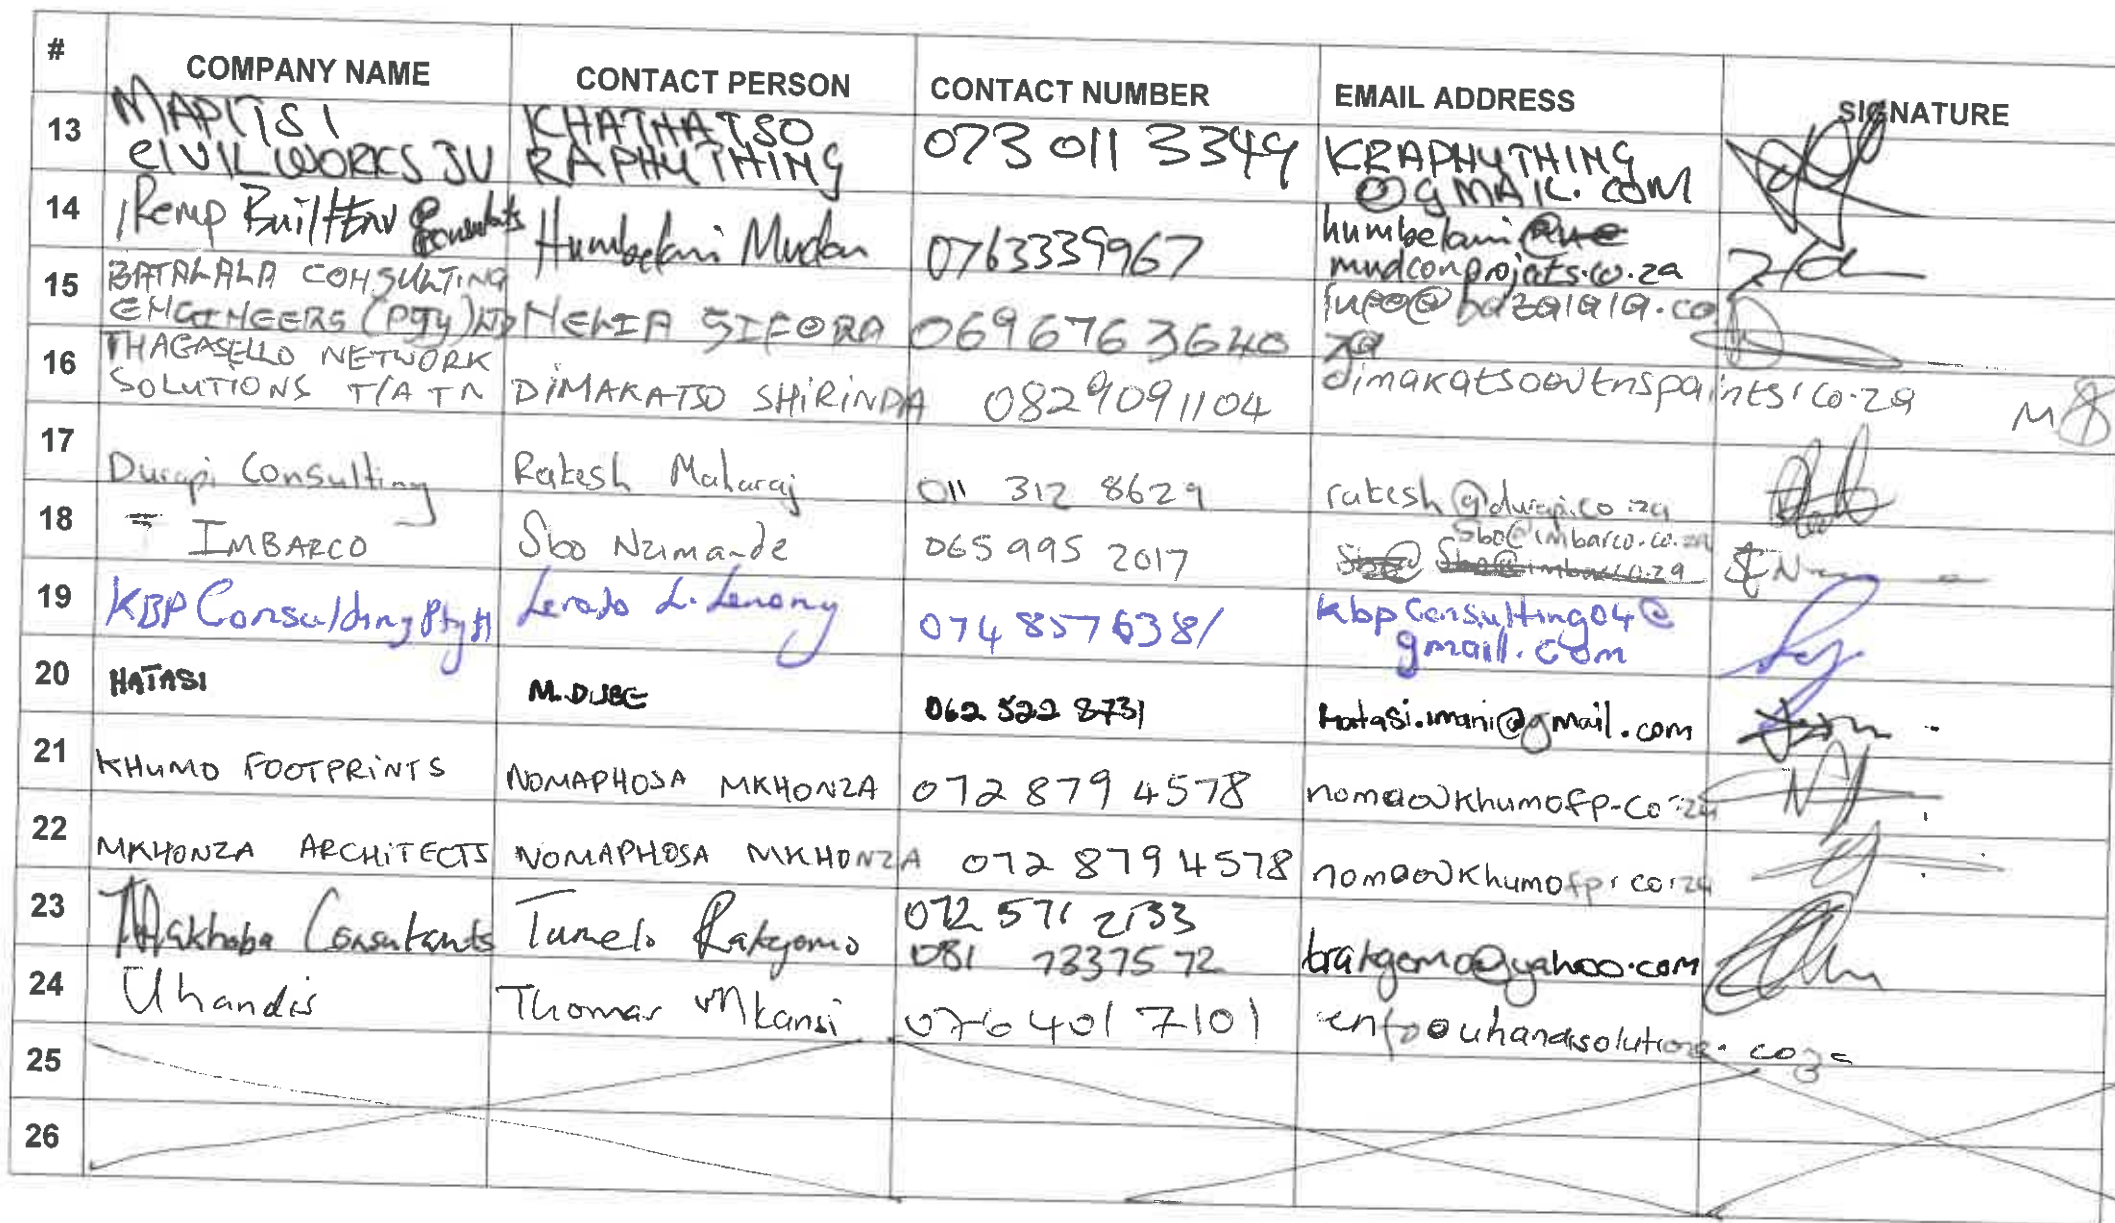 # COMPANY NAME CONTACT PERSON CONTACT NUMBER EMAIL ADDRESS SIGNATURE
13 MAPITSI CIVIL WORKS JV KHATHATSO RAPHUTHING 073 011 3349 KRAPHUTHING@GMAIL.COM
14 Remp BuiltEnv Consultants Humbelani Mudau 0763339967 humbelani@mudconprojects.co.za
15 BATALALA CONSULTING ENGINEERS (PTY) LTD NELIA SIFORA 0696763640 za
16 THAGASELLO NETWORK SOLUTIONS T/A TN DIMAKATSO SHIRINDA 0829091104 dimakatso@tnspaints.co.za
17 Durapi Consulting Rakesh Maharaj 011 312 8629 rakesh@durapi.co.za
18 IMBARCO Sbo Nzimande 065 995 2017 Sbo@imbarco.co.za
19 KBP Consulding Pty 074 8577638/ kbpConsulting04@gmail.com
20 HATASI M. DUBE 062 522 8731 hatasi.imani@gmail.com
21 KHUMO FOOTPRINTS NOMAPHOSA MKHONZA 072 879 4578 noma@khumofp.co.za
22 MKHONZA ARCHITECTS NOMAPHOSA MKHONZA 072 879 4578 noma@khumofp.co.za
23 Consultants Tumelo Rakgomo 072 571 2133 081 7337572 trakgomo@yahoo.com
24 Uhandis Thomas Mkansi 076 401 7101 info@uhandisolutions.coza
25
26